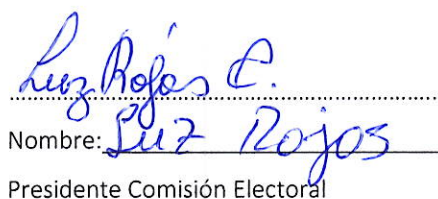 Luz Rojas C.
Nombre: Luz Rojas
Presidente Comisión Electoral